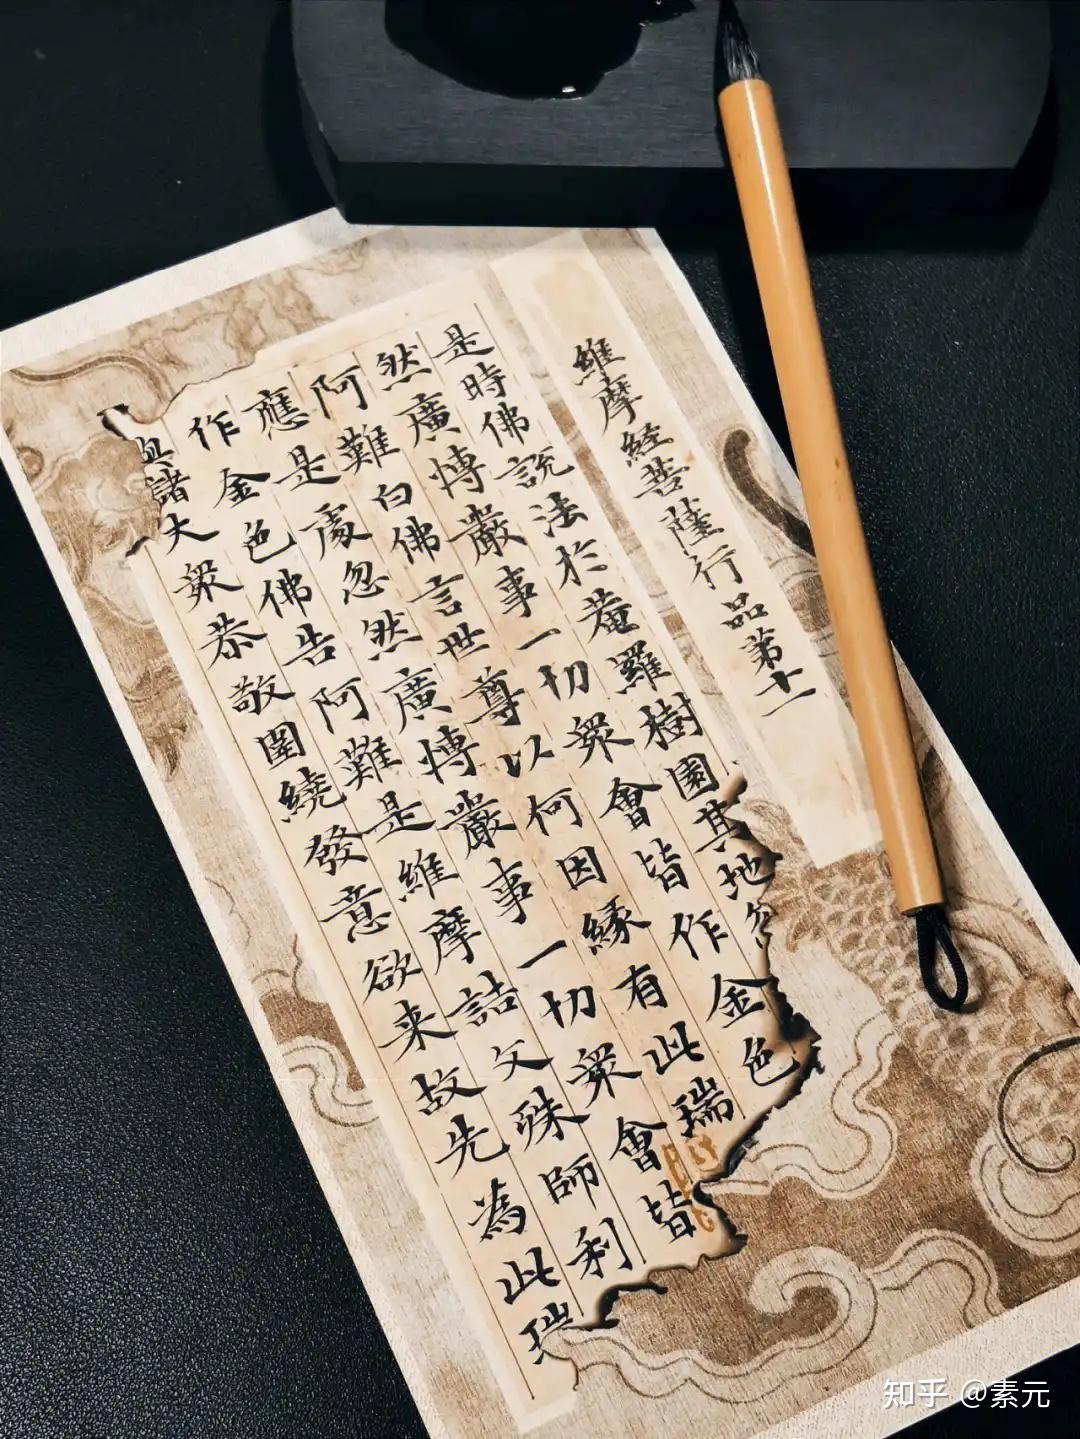 維摩經菩薩行品第十一
是時佛說法於菴羅樹園其地忽
然廣愽嚴事一切眾會皆作金色
阿難白佛言世尊以何因緣有此瑞
應是處忽然廣愽嚴事一切眾會皆
作金色佛告阿難是維摩詰文殊師利
諸大眾恭敬圍繞發意欲来故先為此瑞
知乎 @素元